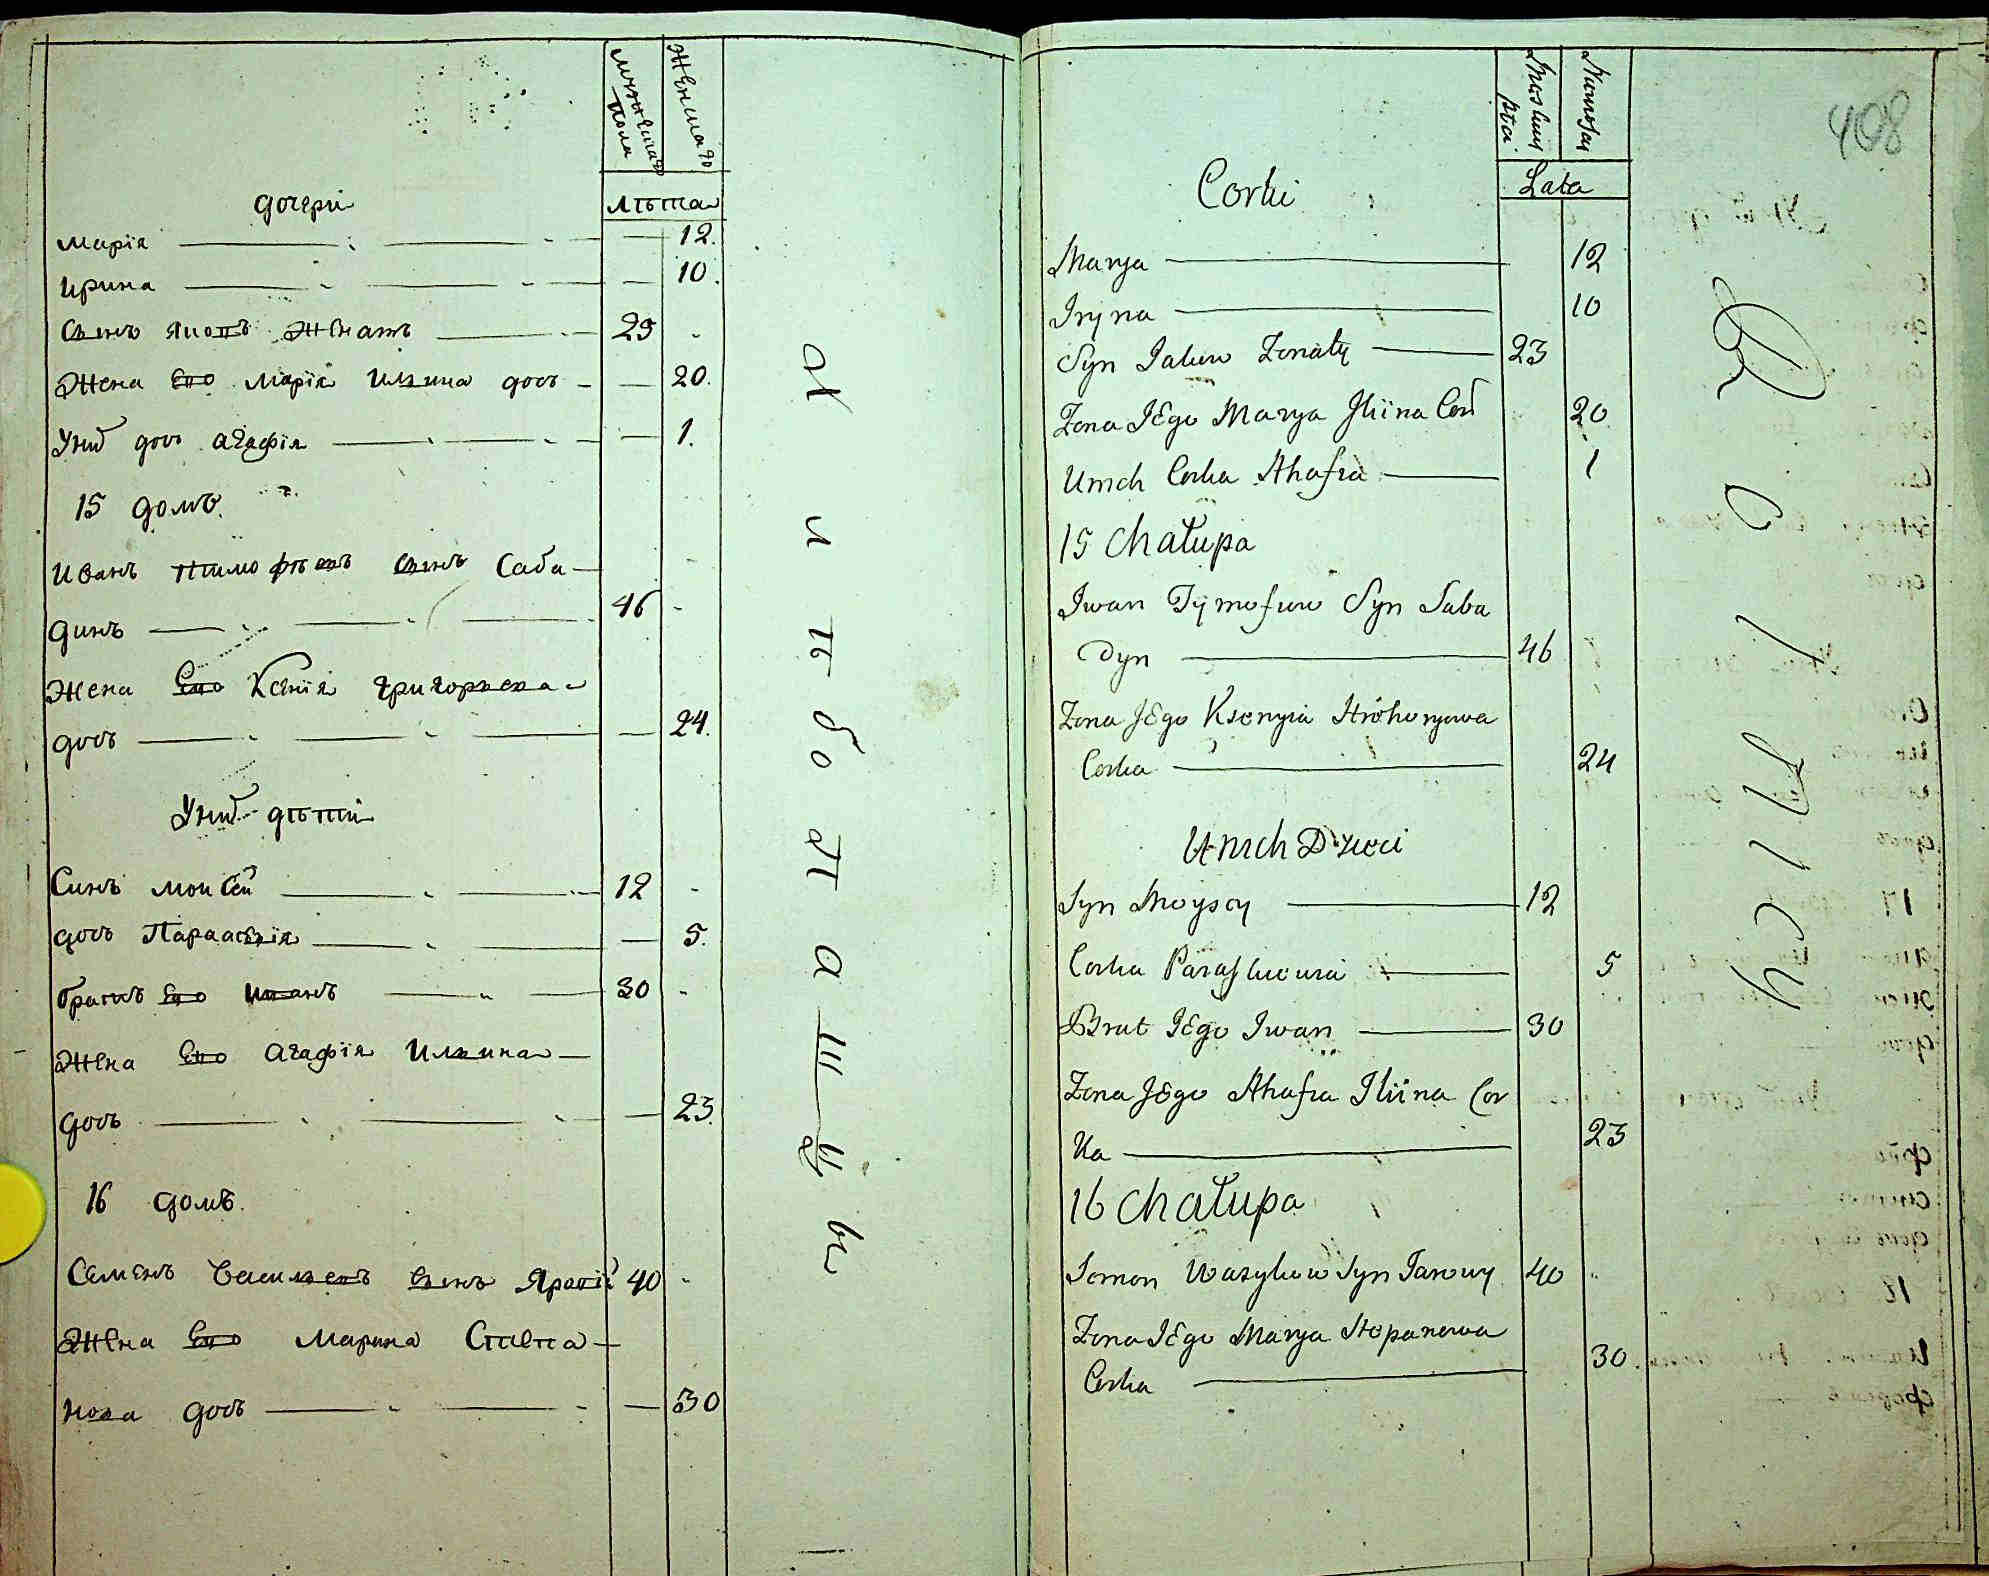 мужеска
пола
женска
дочери
лѣта
Марія 12.
Ирина 10.
Сынъ Яковъ женатъ 23
Жена Его Марія Ильина дочь 20.
Уних дочь Агафія 1.
15 домъ.
Иванъ Тимофѣевъ сынъ Саба
динъ 46
Жена Его Ксенія Григорьева
дочь 24.
Уних дѣтій
Синъ Моисей 12
дочь Параскевія 5.
братъ Его Иванъ 30
Жена Его Агафія Ильина
дочь 23.
16 домъ.
Семенъ Васильевъ сынъ Яровій 40
Жена Его Марина Степа
нова дочь 30
Mus kiey
płci
Lata
408
Corki
Marya 12
Iryna 10
Syn Jakow Zonaty 23
Zona JEgo Marya Iliina Cor 20
Unich Corka Ahafia 1
15 Chałupa
Iwan Tymofiew Syn Saba
dyn 46
Zona JEgo Ksenyia Hrehoryewa
Corka 24
Unich Dzieci
Syn Moysey 12
Corka Paraskiewia 5
Brat JEgo Iwan 30
Zona JEgo Ahafia Iliina Cor
ka 23
16 Chałupa
Semen Wasylew Syn Jarowy 40
Zona JEgo Marya Stepanowa
Corka 30